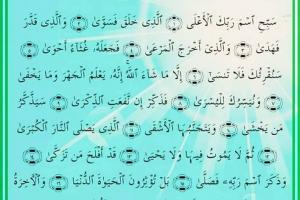 سَبِّحِ ٱسْمَ رَبِّكَ ٱلْأَعْلَى ١ ٱلَّذِى خَلَقَ فَسَوَّىٰ ٢ وَٱلَّذِى قَدَّرَ
فَهَدَىٰ ٣ وَٱلَّذِىٓ أَخْرَجَ ٱلْمَرْعَىٰ ٤ فَجَعَلَهُۥ غُثَآءً أَحْوَىٰ ٥
سَنُقْرِئُكَ فَلَا تَنسَىٰٓ ٦ إِلَّا مَا شَآءَ ٱللَّهُ إِنَّهُۥ يَعْلَمُ ٱلْجَهْرَ وَمَا يَخْفَىٰ
٧ وَنُيَسِّرُكَ لِلْيُسْرَىٰ ٨ فَذَكِّرْ إِن نَّفَعَتِ ٱلذِّكْرَىٰ ٩ سَيَذَّكَّرُ
مَن يَخْشَىٰ ١٠ وَيَتَجَنَّبُهَا ٱلْأَشْقَى ١١ ٱلَّذِى يَصْلَى ٱلنَّارَ ٱلْكُبْرَىٰ
١٢ ثُمَّ لَا يَمُوتُ فِيهَا وَلَا يَحْيَىٰ ١٣ قَدْ أَفْلَحَ مَن تَزَكَّىٰ ١٤
وَذَكَرَ ٱسْمَ رَبِّهِۦ فَصَلَّىٰ ١٥ بَلْ تُؤْثِرُونَ ٱلْحَيَوٰةَ ٱلدُّنْيَا ١٦ وَٱلْءَاخِرَةُ